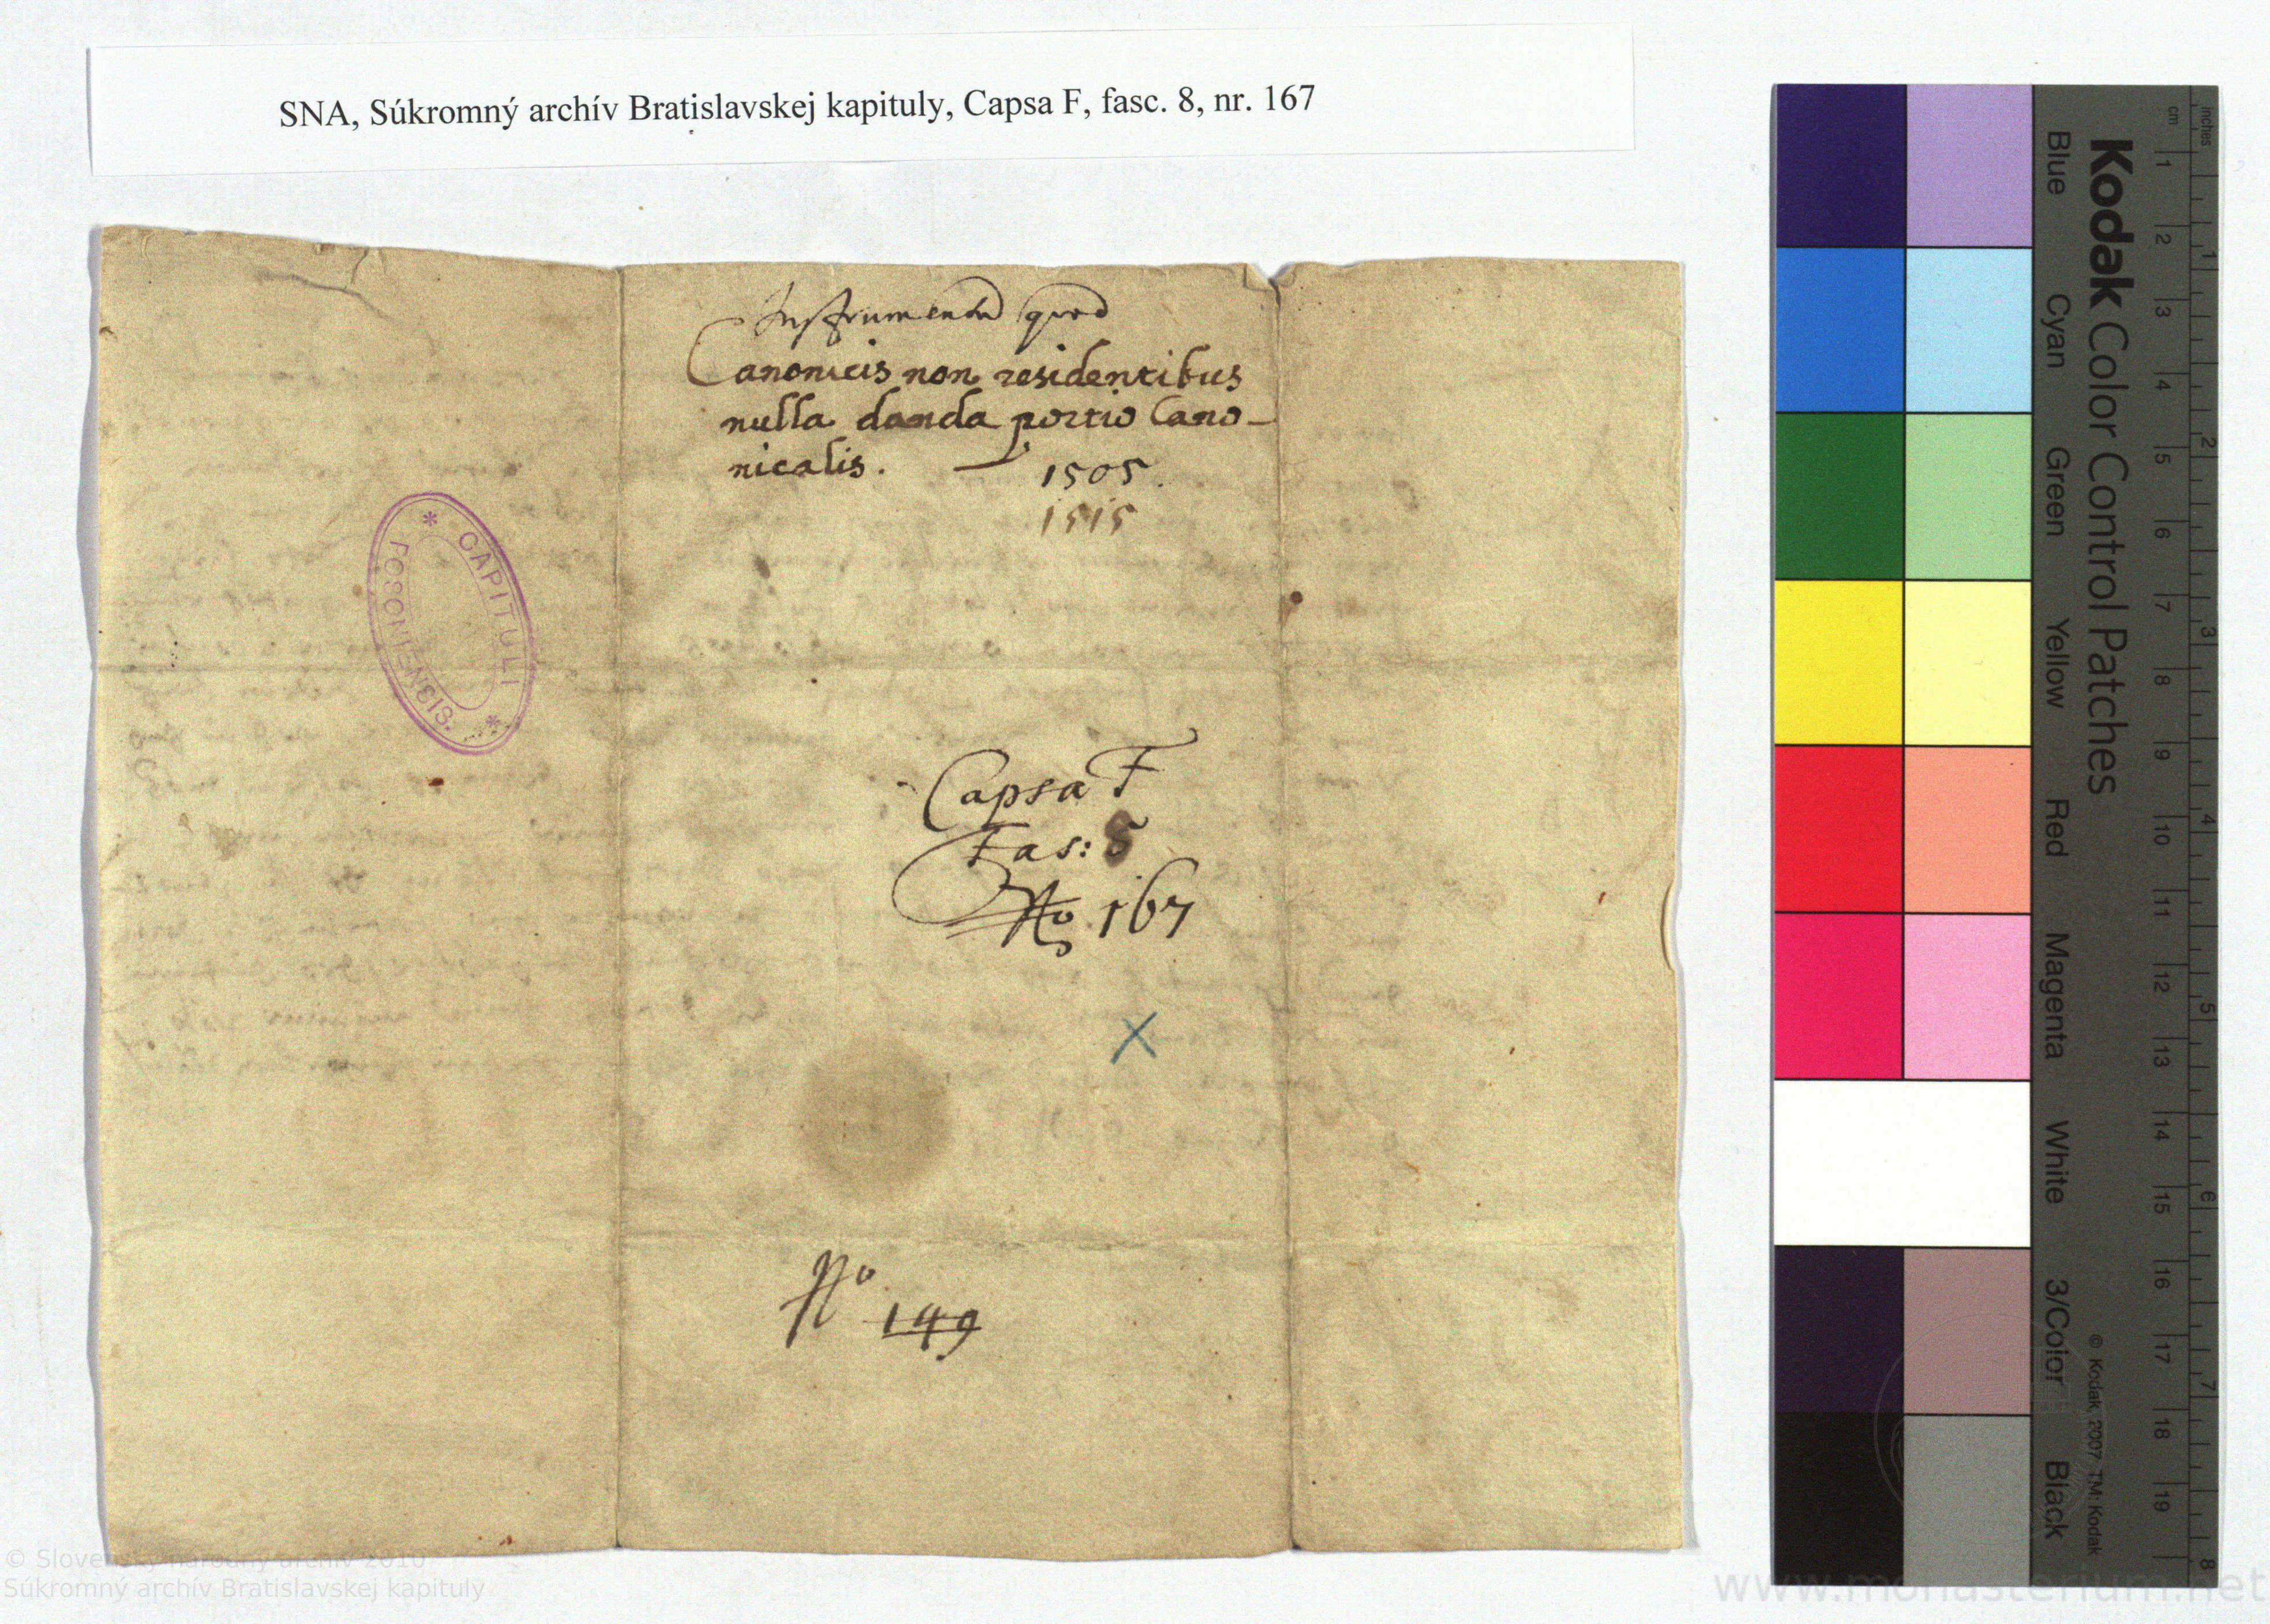 SNA, Súkromný archív Bratislavskej kapituly, Capsa F, fasc. 8, nr. 167
Instrumentu quod
Canonicis non residentibus
nulla danda portio Cano-
nicalis. — 1505.
1515
* CAPITULI *
POSONIENCIS.
Capsa F
Fas: 8
No 167
X
No
149
Kodak Color Control Patches
Blue Cyan Green Yellow Red Magenta White 3/Color Black
© Kodak, 2007 TM: Kodak
cm 1 2 3 4 5 6 7 8 9 10 11 12 13 14 15 16 17 18 19
inches 1 2 3 4 5 6 7 8
© Slovenský národný archív 2010
Súkromný archív Bratislavskej kapituly
www.monasterium.net